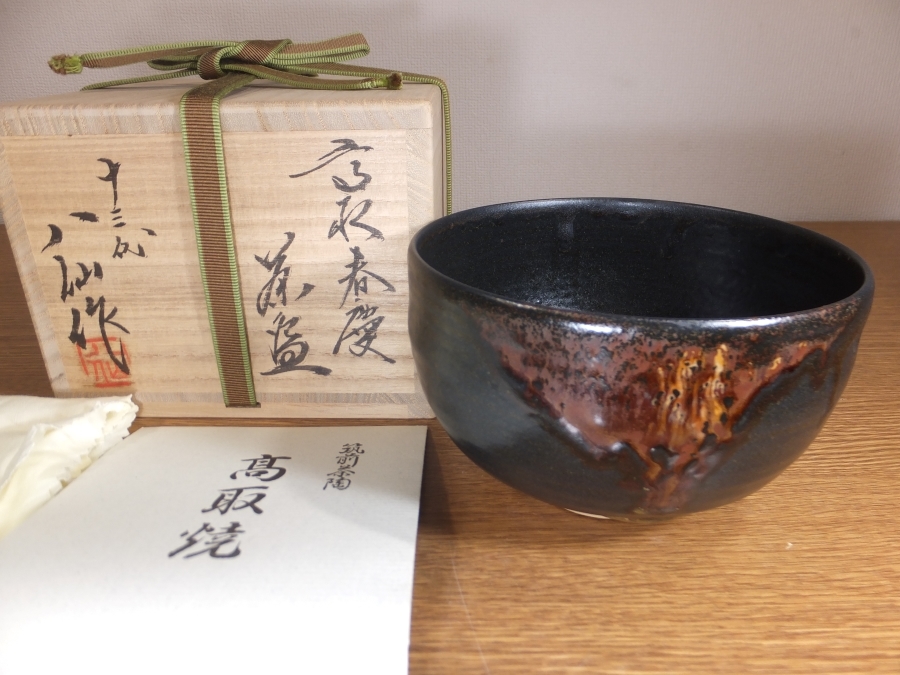 高取春慶
茶盌
十三代
八仙作
筑前茶陶
髙取焼